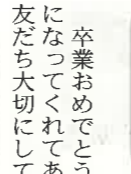 卒業おめでとう
になってくれてあ
友だち大切にして